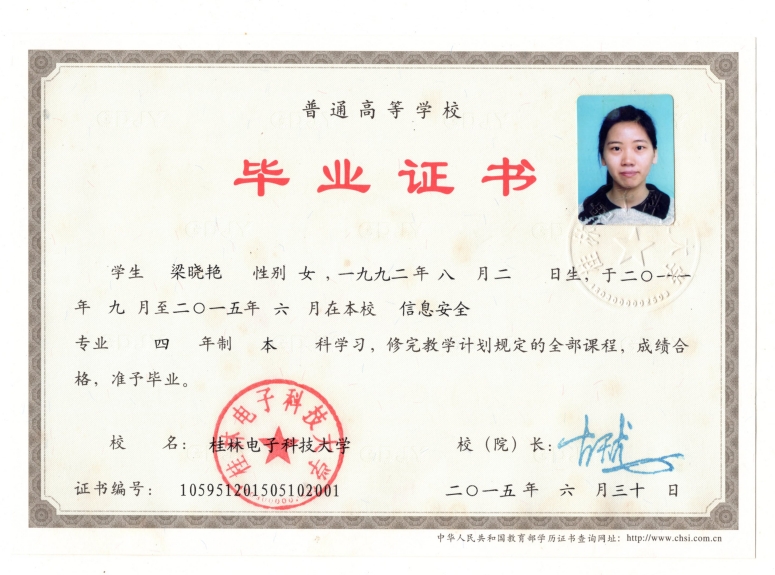 普通高等学校
毕业证书
学生 梁晓艳 性别 女，一九九二年 八 月二 日生，于二〇一一
年 九 月至二〇一五年 六 月在本校 信息安全
专业 四 年制 本 科学习，修完教学计划规定的全部课程，成绩合
格，准予毕业。
校 名： 桂林电子科技大学 校（院）长：
桂林电子科技大学
证书编号： 105951201505102001 二〇一五 年 六 月三十 日
中华人民共和国教育部学历证书查询网址：http://www.chsi.com.cn